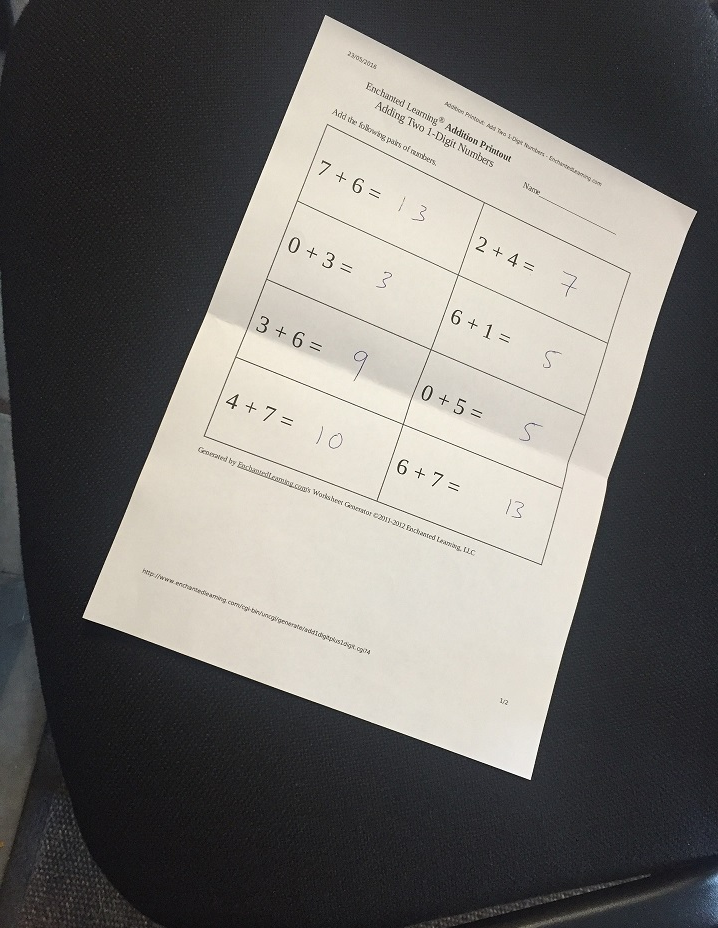 23/05/2016
Addition Printout: Add Two 1-Digit Numbers - EnchantedLearning.com
Enchanted Learning® Addition Printout
Adding Two 1-Digit Numbers
Name
Add the following pairs of numbers.
7 + 6 = 13
2 + 4 = 7
0 + 3 = 3
6 + 1 = 5
3 + 6 = 9
0 + 5 = 5
4 + 7 = 10
6 + 7 = 13
Generated by EnchantedLearning.com's Worksheet Generator ©2011-2012 Enchanted Learning, LLC
http://www.enchantedlearning.com/cgi-bin/uncgi/generate/add1digitplus1digit.cgi?4
1/2